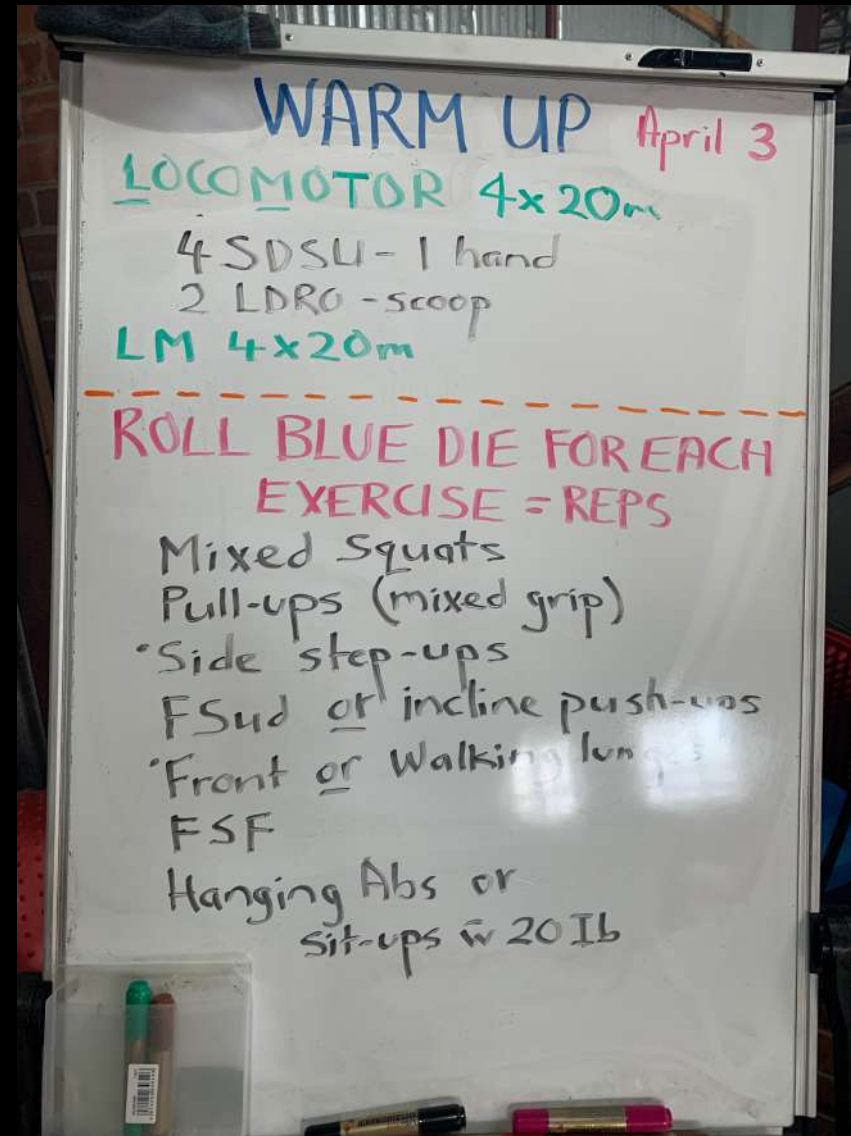 WARM UP April 3
LOCOMOTOR 4x20m
4 SDSU - 1 hand
2 LDRO - scoop
LM 4x20m
ROLL BLUE DIE FOR EACH
EXERCISE = REPS
Mixed Squats
Pull-ups (mixed grip)
·Side step-ups
FSud or incline push-ups
·Front or Walking lunges
FSF
Hanging Abs or
sit-ups w̄ 20 Ib